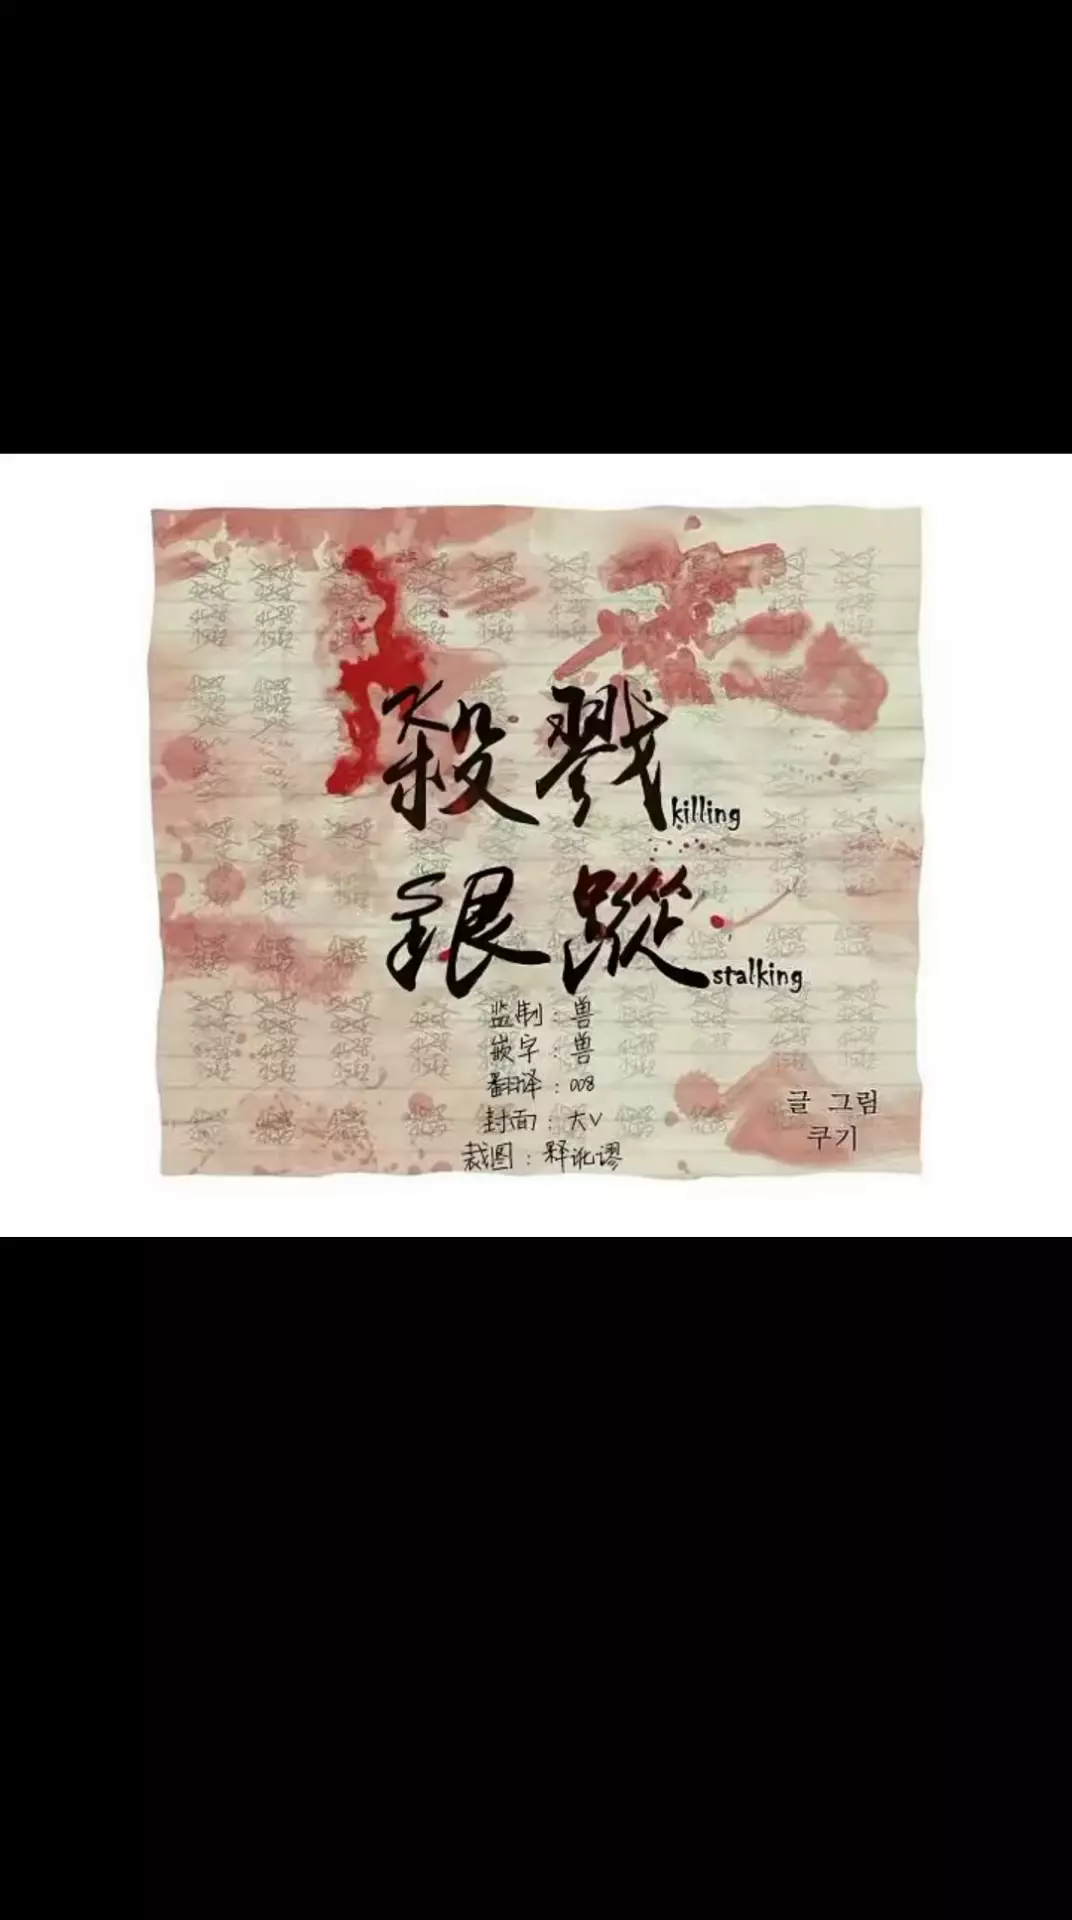 殺戮
killing
銀蹤
stalking
监制：兽
嵌字：兽
翻译：008
封面：大V
裁图：释讹谬
글 그림
쿠기